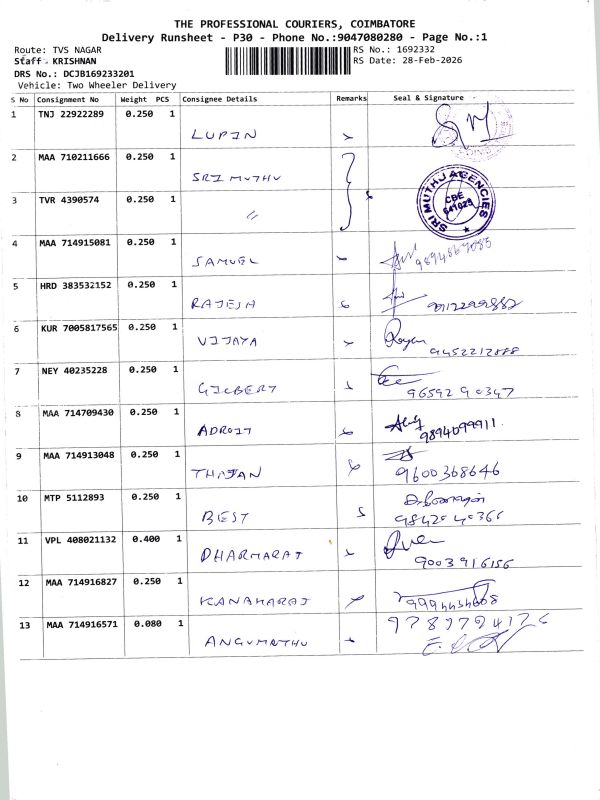 THE PROFESSIONAL COURIERS, COIMBATORE
Delivery Runsheet - P30 - Phone No.:9047080280 - Page No.:1
Route: TVS NAGAR
RS No.: 1692332
Staff: KRISHNAN
RS Date: 28-Feb-2026
DRS No.: DCJB169233201
Vehicle: Two Wheeler Delivery
S No Consignment No Weight PCS Consignee Details Remarks Seal & Signature
1 TNJ 22922289 0.250 1 LUPIN
2 MAA 710211666 0.250 1 SRI MUTHU
SRI MUTHU AGENCIES CBE 641029
3 TVR 4390574 0.250 1 〃
4 MAA 714915081 0.250 1 SAMUEL
5 HRD 383532152 0.250 1 RAJESH
6 KUR 7005817565 0.250 1 VIJAYA
7 NEY 40235228 0.250 1 GILBERT
9659290347
8 MAA 714709430 0.250 1 ADROIT
9894099911
9 MAA 714913048 0.250 1
9600368646
10 MTP 5112893 0.250 1 BEST
9842040366
11 VPL 408021132 0.400 1 DHARMARAJ
9003916156
12 MAA 714916827 0.250 1 KANAKARAJ
13 MAA 714916571 0.080 1 ANGUMUTHU